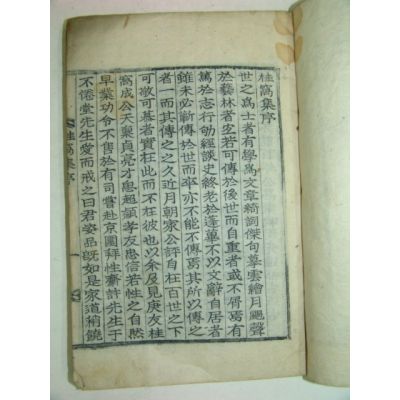 桂窩集序
世之爲士者有學爲文章綺詞傑句摹雲繪月颺聲
於藝林者宜若可傳於後世而自重者或不屑焉有
篤於志行劬經談史終老於蓬蓽不以文辭自居者
雖未必蘄傳於世而卒亦不能不傳焉其所以傳之
者一而其傳之之久近月朝家公評自在百世之下
可敬可慕者實在此而不在彼也以余屢見庚友桂
窩成公天稟貞亮才思超穎孝友忠信若性之自然
早業功令不售於有司嘗赴京圍拜性齋許先生于
不倦堂先生愛而戒之曰君姿品旣如是家道稍饒
桂窩集序